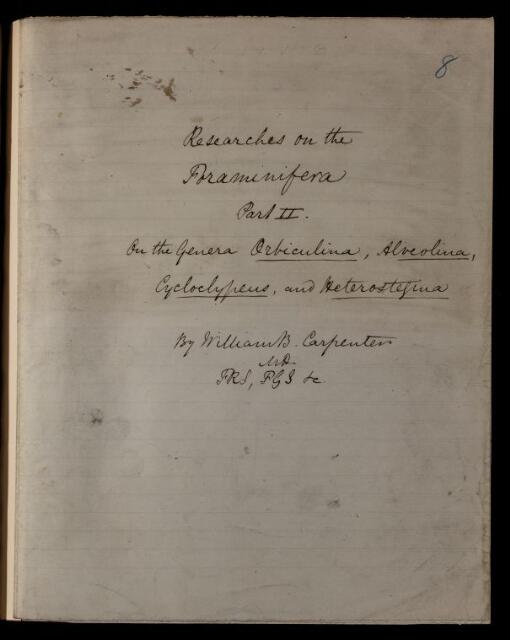 8
Researches on the
Foraminifera
Part II.
On the Genera Orbiculina, Alveolina,
Cycloclypeus, and Heterostegina
By William B. Carpenter
MD.
FRS, FGS &c